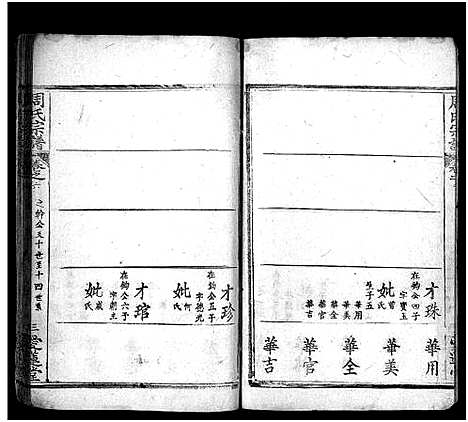 周氏宗譜
才珠
在鈞公四子
字寶玉
妣曾氏
生子五
華用
華美
華全
華官
華吉
華用
華美
華全
華官
華吉
才珍
在鈞公五子
字德光
妣何氏
才琯
在鈞公六子
妣戚氏
周氏宗譜
卷之
之幹公五十世至十四世系
三